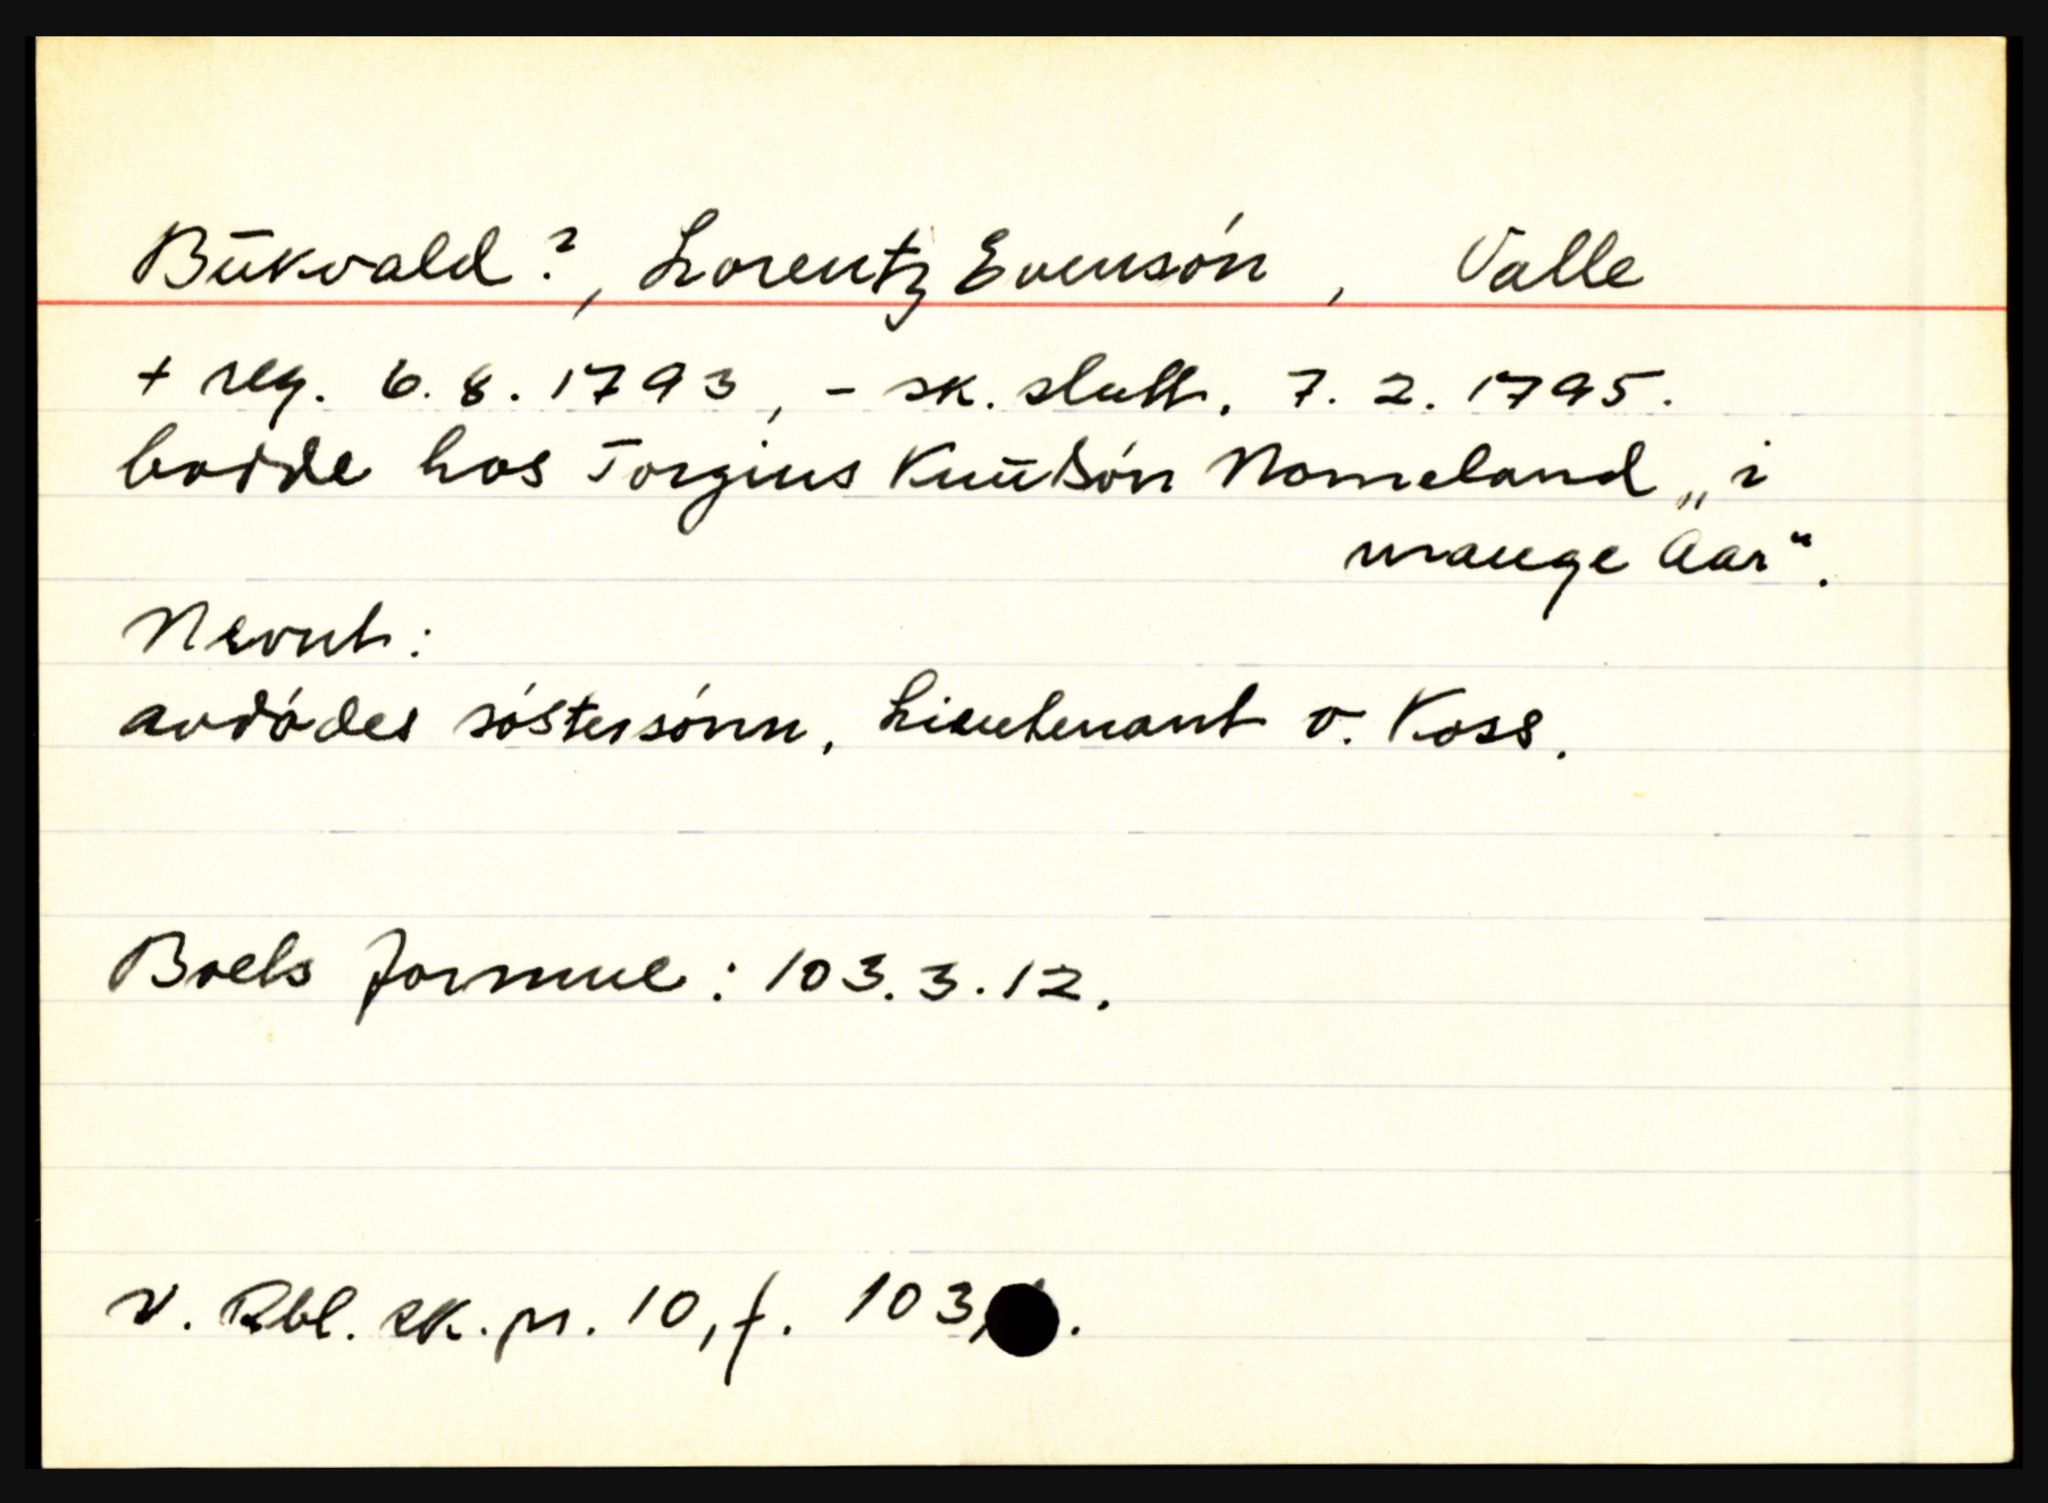 Būkvald?, Lorentz Evensón, Valle
+ reg. 6.8.1793, - sk. slutt. 7.2.1795.
bodde hos Torgius Knūtsón Nomeland „i
mange Aar“.
Nevnt:
avdódes sóstersónn, Lieutenant v. Koss.
Boets formue: 103.3.12.
v. Rbl. sk. pr. 10, f. 103,